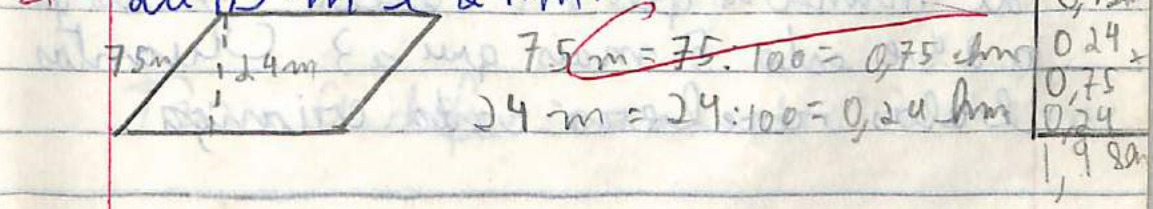 75m 24m 75 m = 75:100 = 0,75 hm
24 m = 24:100 = 0,24 hm
0 24
0,75
0,24
1,98